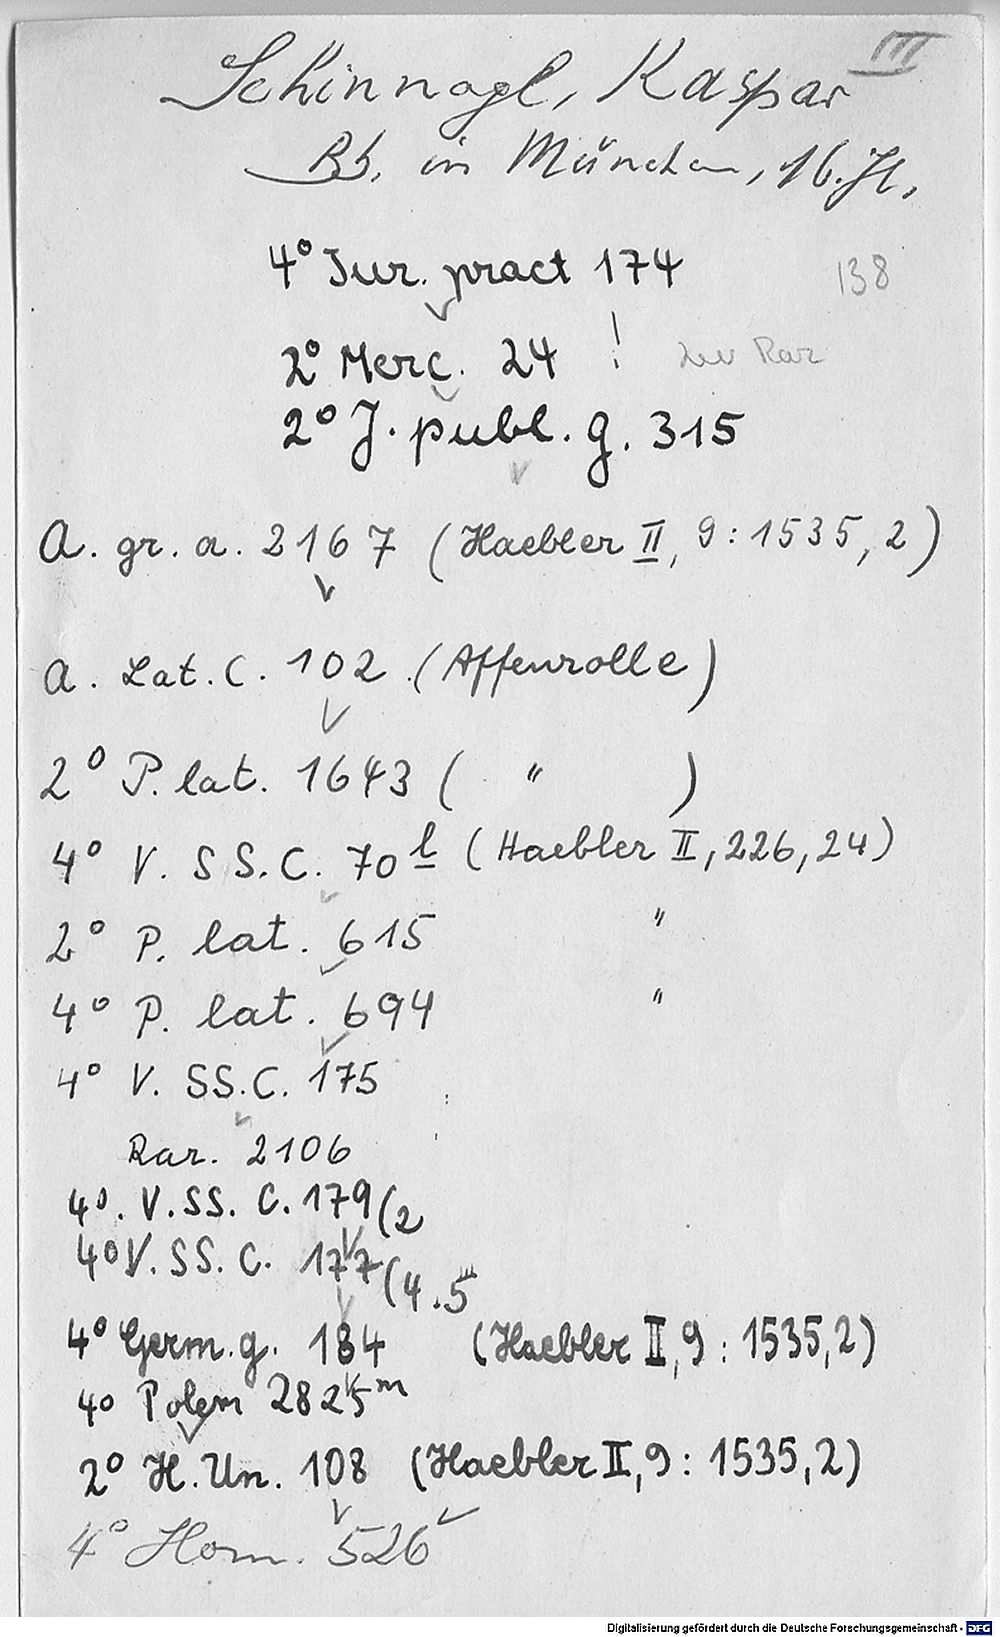 III
Schinnagl, Kaspar
Bb. in München, 16. Jh.
4° Jur. pract 174
138
2° Merc. 24 ! Rar
2° J. publ. g. 315
A. gr. a. 2167 (Haebler II, 9: 1535, 2)
A. Lat. C. 102 (Affenrolle)
2° P. lat. 1643 ( " )
4° V. SS. C. 70 l (Haebler II, 226, 24)
2° P. lat. 615 "
4° P. lat. 694 "
4° V. SS. C. 175
Rar. 2106
4°. V. SS. C. 179(2
4° V. SS. C. 177(4.5
4° Germ. g. 184 (Haebler II, 9: 1535, 2)
4° Polem 2825m
2° H. Un. 108 (Haebler II, 9: 1535, 2)
4° Hom. 526
Digitalisierung gefördert durch die Deutsche Forschungsgemeinschaft - DFG